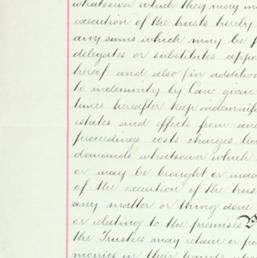 whatsoever which they may in
execution of the trusts hereby
any sums which may be p
delegates or substitutes appo
hereof and also (in addition
to indemnity by Law given
times hereafter keep indemnifi
estates and effects from and
proceedings costs charges lo
demands whatsoever which
or may be brought or made
of the execution of the trus
any matter or thing done
or relating to the premises
the Trustees may retain or pa
monies in their hands whe